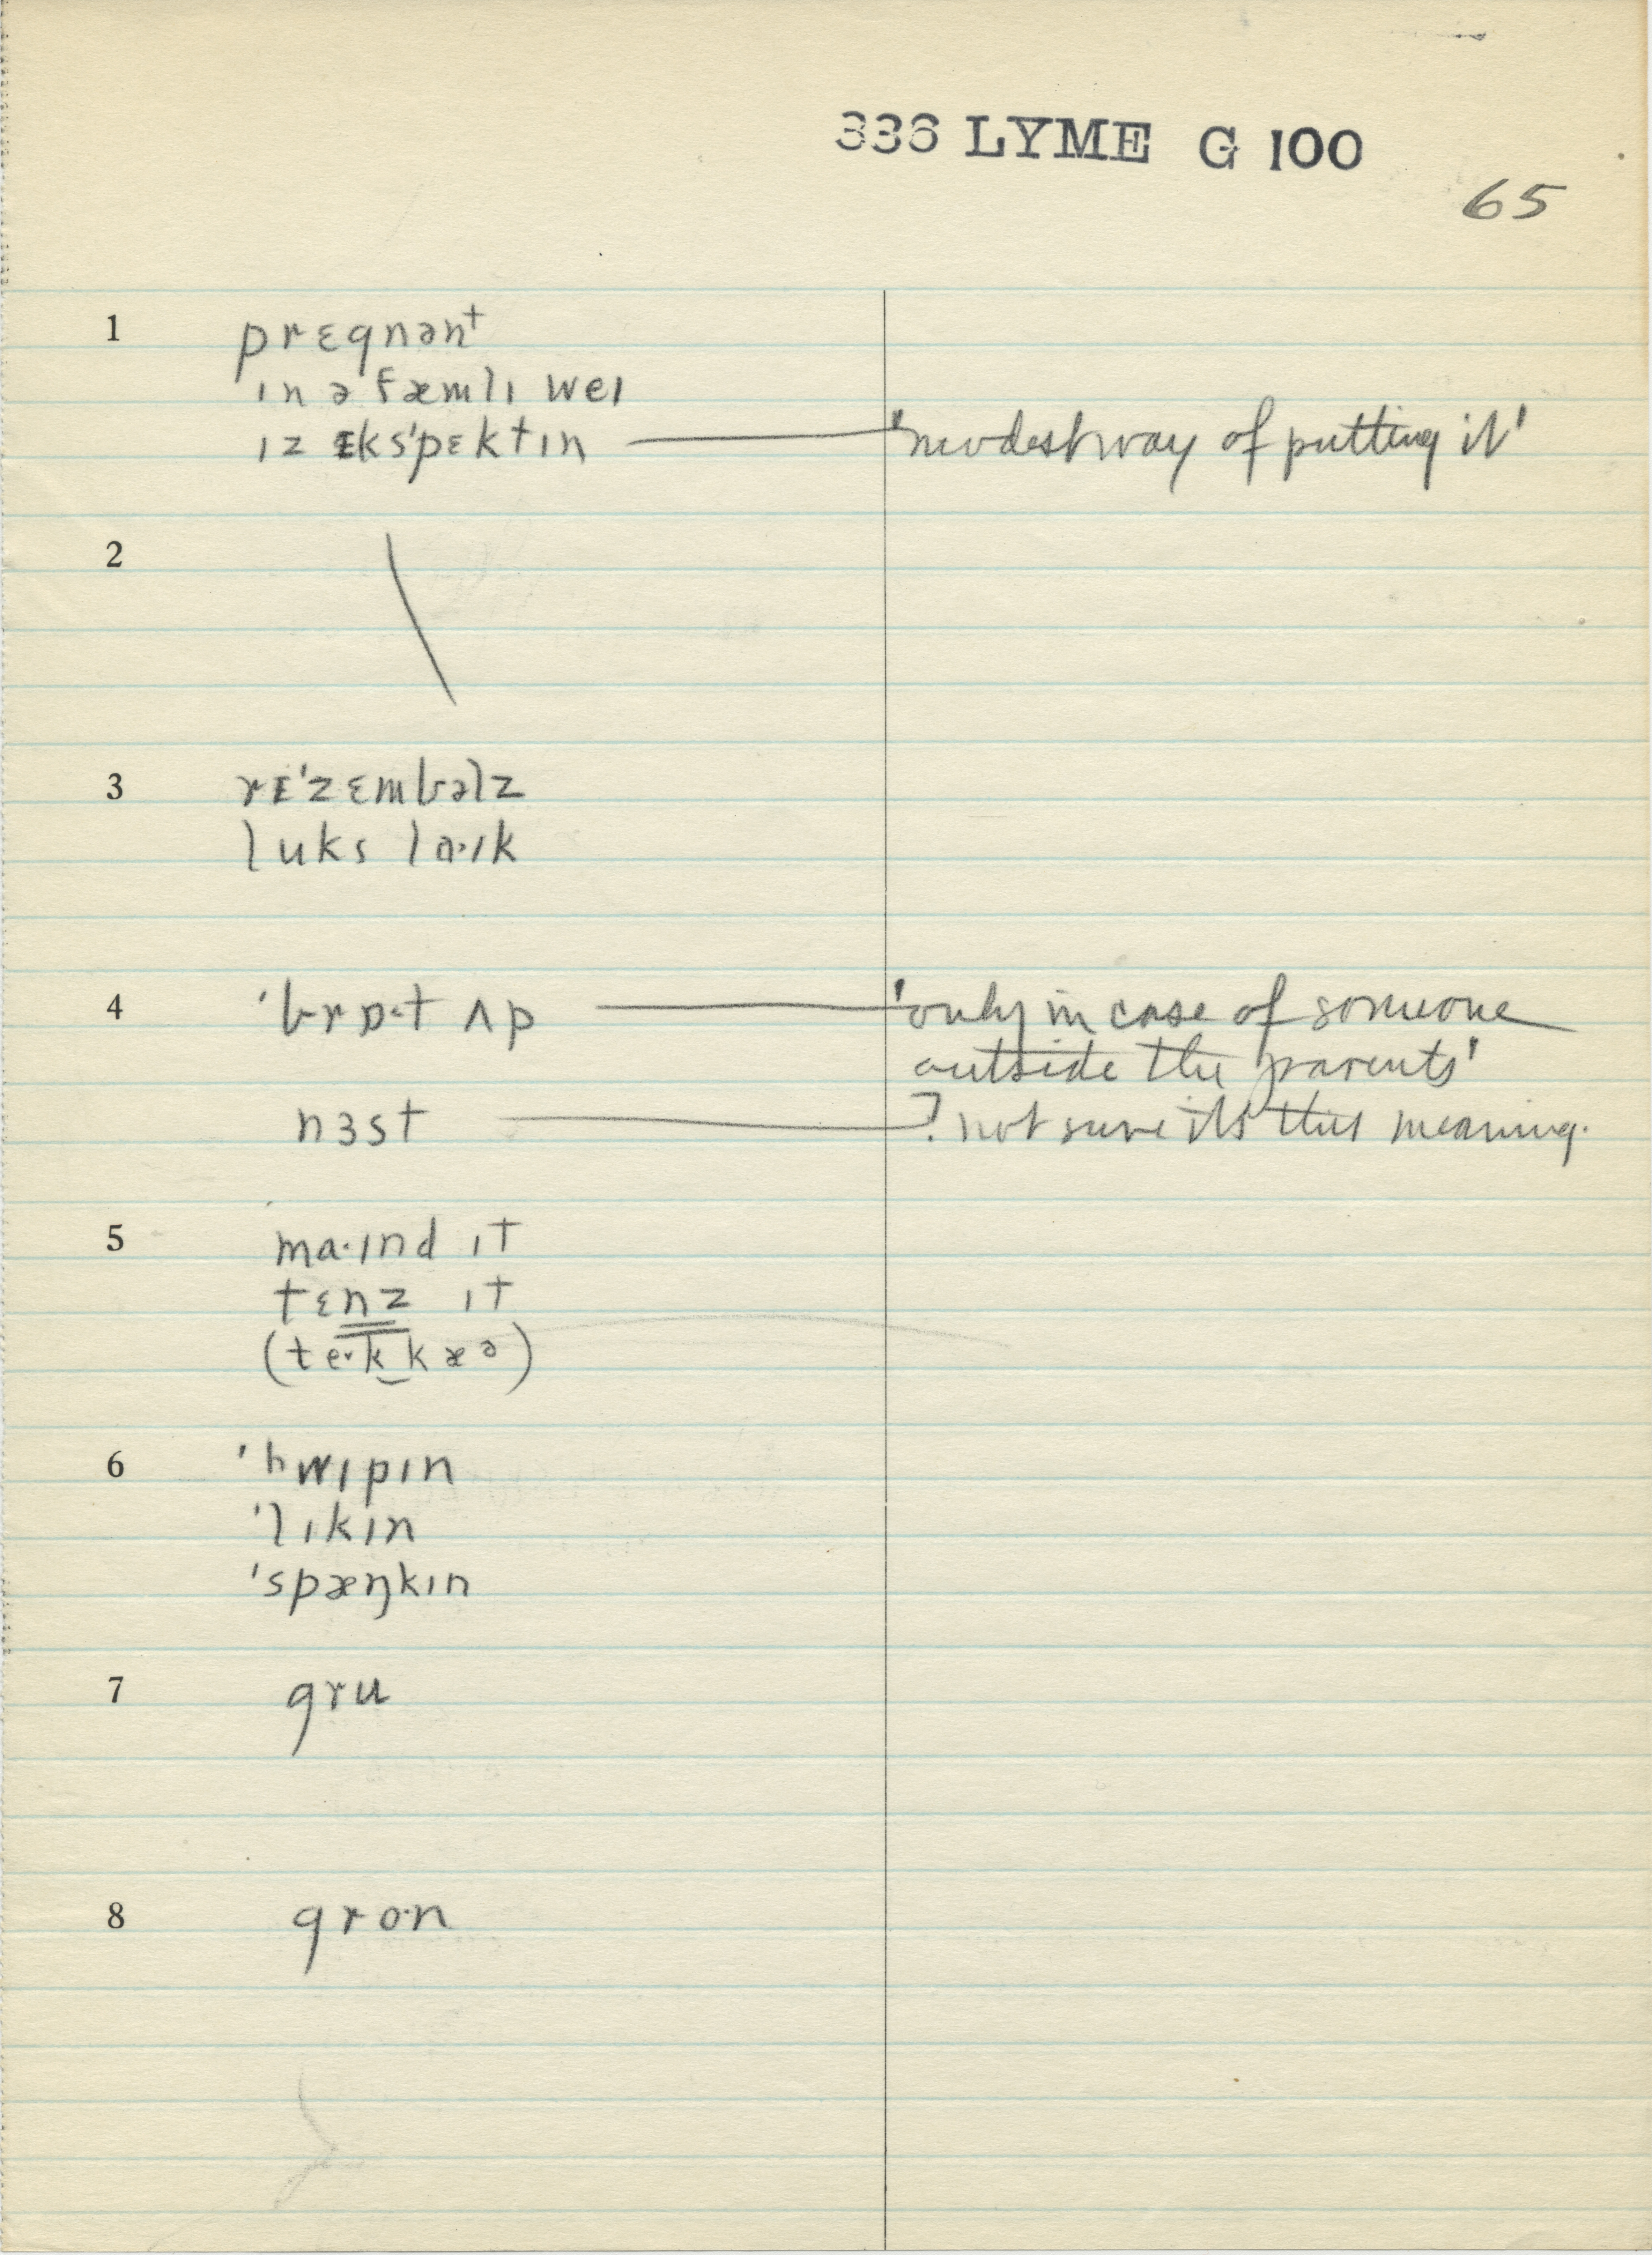 336 LYME G 100
65
1 prɛgnənt
ɪn ə fæmlɪ weɪ
ɪz ɪksˈpɛktɪn 'modest way of putting it'
2
3 rɪˈzɛmbəlz
luks lɑ·ɪk
4 ˈbrɒ·t ʌp 'only in case of someone
outside the parents'
nɜst ? not sure it's this meaning.
5 ma·ɪnd ɪt
tɛnz ɪt
(te·k kæə)
6 ˈhwɪpɪn
ˈlɪkɪn
ˈspæŋkɪn
7 gru
8 gro·n